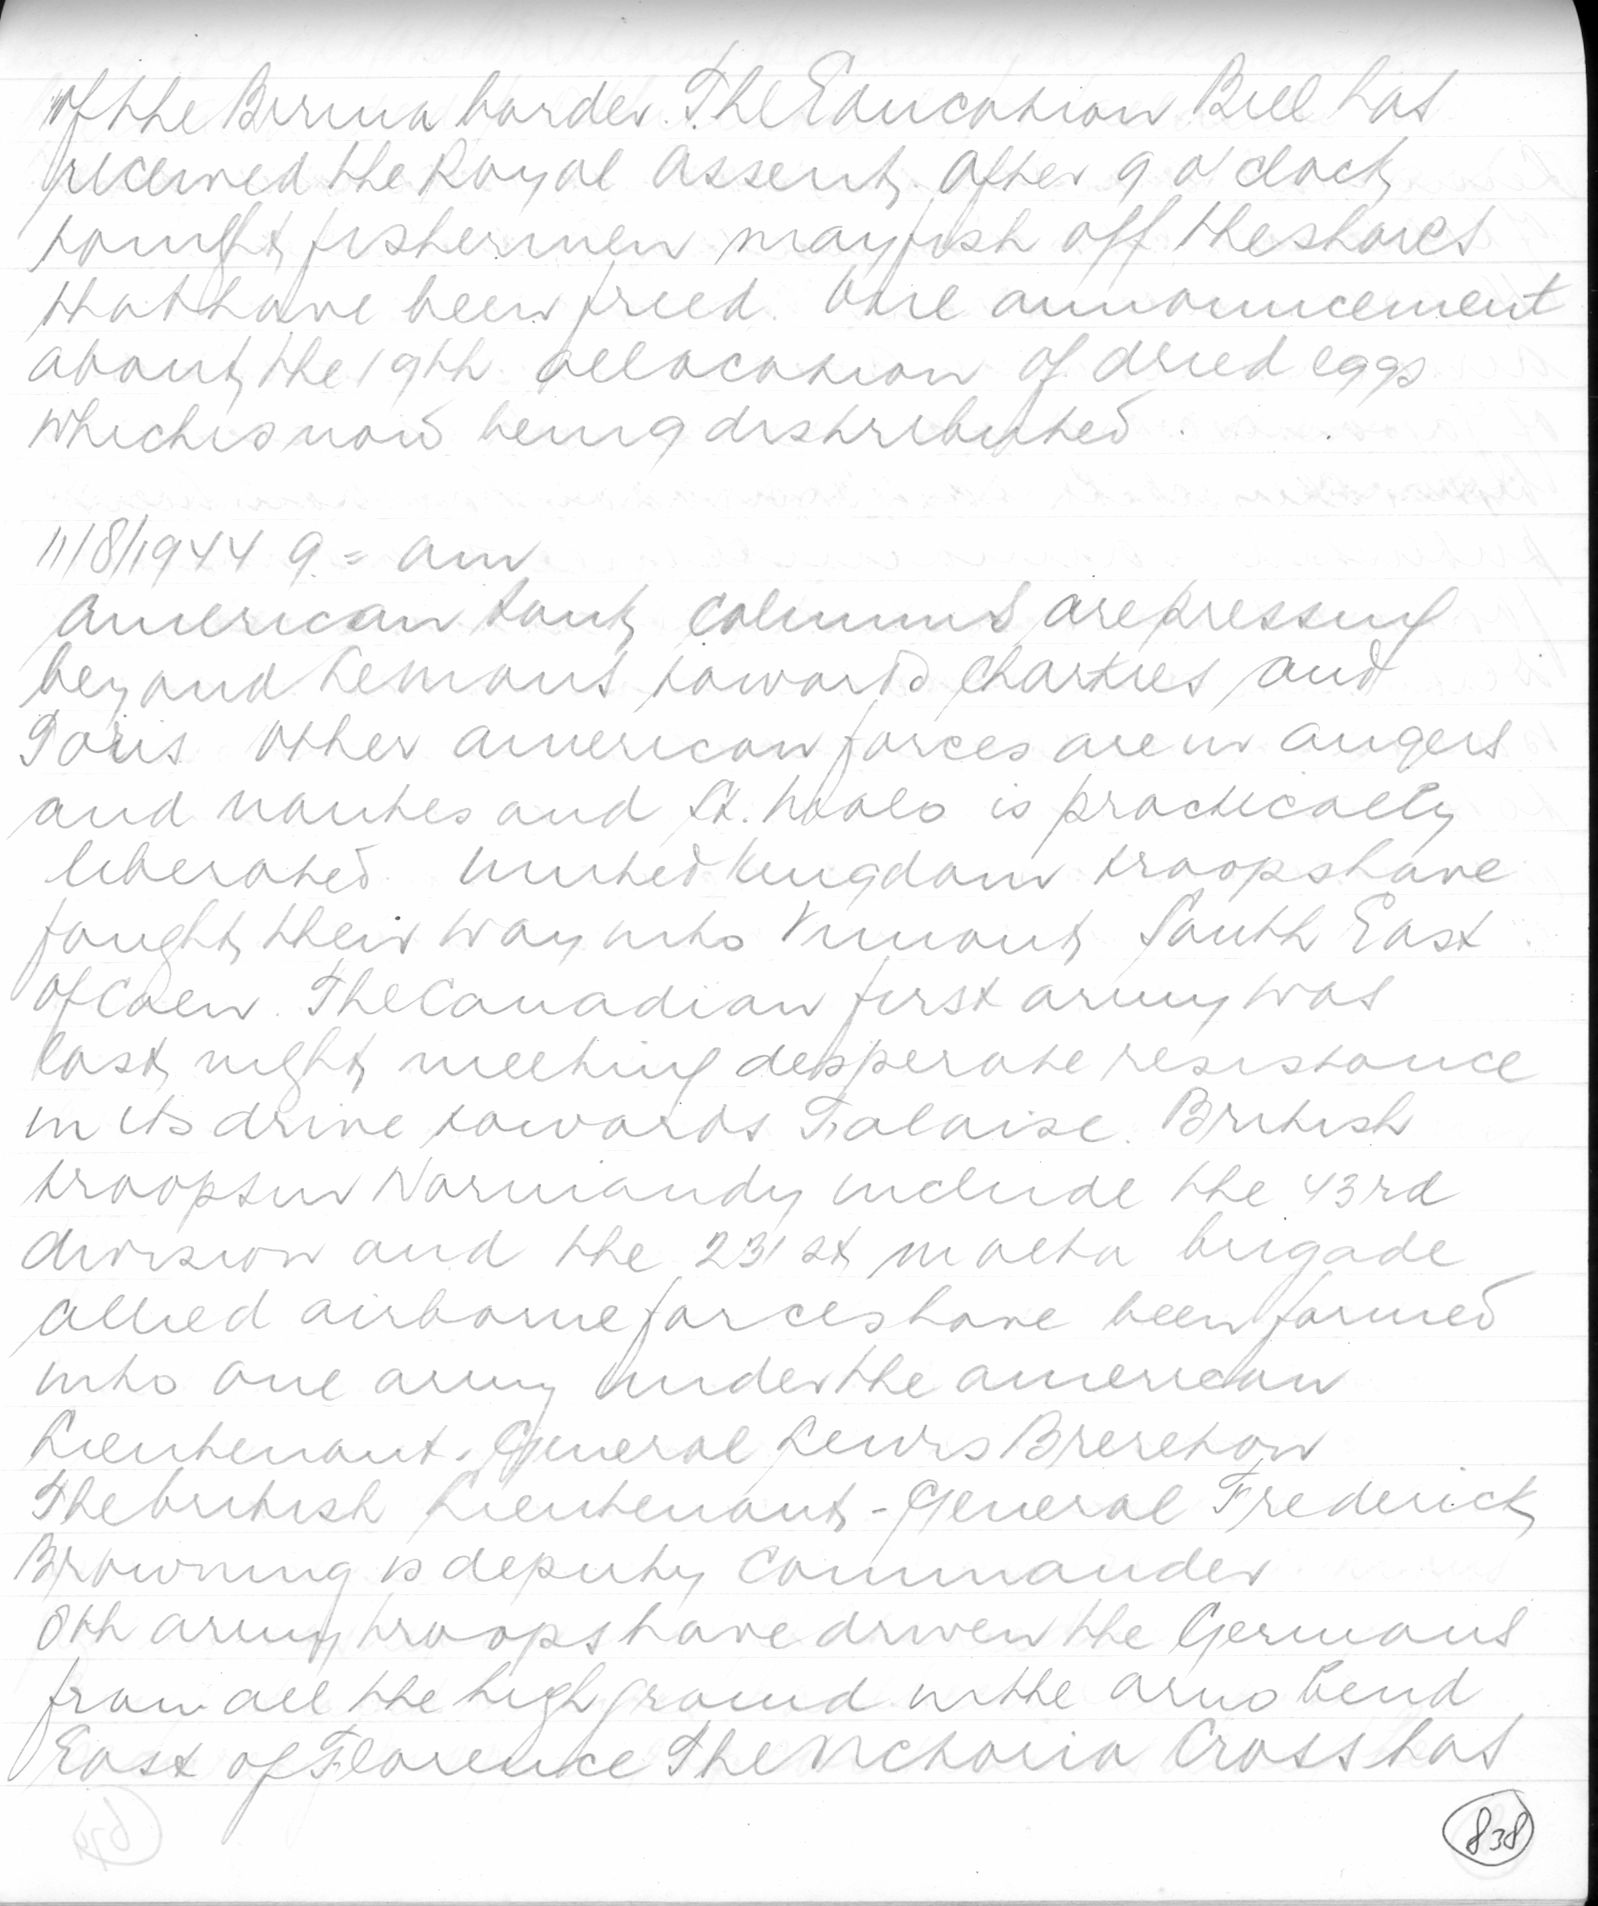 of the Birma border. The Education Bill has
received the Royal Assent. After 9 o'clock
tonight fishermen may fish off the shores
that have been freed. One announcement
about the 19th allocation of dried eggs
which is now being distributed.
11/8/1944 9 = am
American tank columns are pressing
beyond Lemans towards Chartres and
Paris Other American forces are in Angers
and Nantes and St. Malo is practically
liberated United Kingdom troops have
fought their way into Vimont South East
of Caen. The Canadian first army was
last night meeting desperate resistance
in its drive towards Falaise. British
troops in Normandy include the 43rd
division and the 231st Malta brigade
allied airborne forces have been formed
into one army under the American
Lieutenant-General Lewis Brereton
The british Lieutenant-General Frederick
Browning is deputy Commander
8th army troops have driven the Germans
from all the high ground in the Arno bend
East of Florence The Victoria Cross has
838